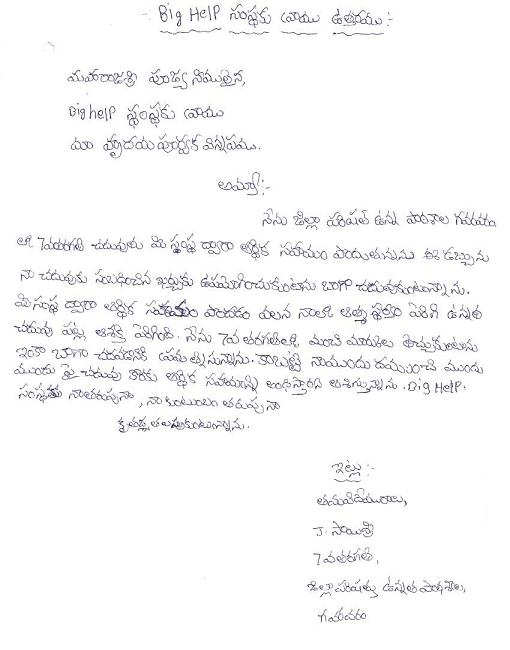 :- Big HelP సంస్థకు వ్రాయు ఉత్తరము :-
మహారాజశ్రీ పూజ్య నీములైన,
Big help స్థంస్థకు వ్రాయు
మా హృదయ పూర్వక విన్నపము.
అమ్మా! :-
నేను జిల్లా పరిషత్ ఉన్న పాఠశాల గవరవరం
7వతరగతి చదువుతు మీ స్థంస్థ ద్వారా ఆర్థిక సహాయం పొందుతునును ఈ డబ్బును
నా చదువుకు సంబధించిన ఖర్చుకు ఉపయోగించుకుంటాను బాగా చదువుకుంటున్నాను.
మీ సంస్థ ద్వారా ఆర్థిక సహాయం పొందడం వలన నాలో ఆత్మ స్థైర్యం పెరిగి ఉన్నత
చదువు పట్ల ఆసక్తి పెరిగింది. నేను 7వ తరగతిలో మంచి మార్కులు తెచ్చుకుంటాను
ఇంకా బాగా చదవడానికి ప్రయత్నిస్తున్నాను. కాబట్టి నాముందు ముందు
పై చదువు కొరకు ఆర్థిక సహాయాన్ని అందిస్తారని ఆశిస్తున్నాను. Big HelP.
సంస్థకు నా తరుపునా, నా కుటుంబం తరుపు నా
కృతజ్ఞతలు తెలుపుకుంటున్నాను.
ఇట్లు :-
తమవిదేయురాలు,
J. సాయిశ్రీ
7వతరగతి,
జిల్లా పరిషత్తు ఉన్నత పాఠశాల,
గవరవరం